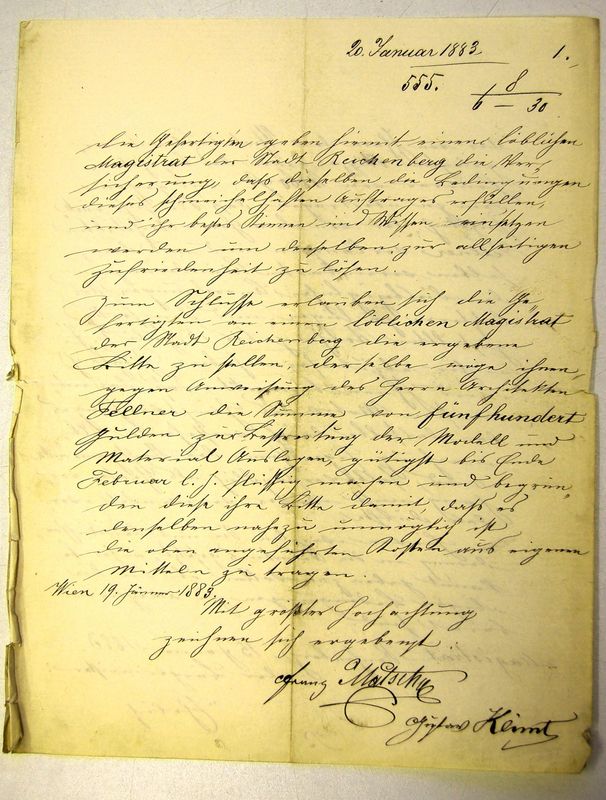 20. Januar 1883
1.
555.
8
6 — 30
die Gefertigten geben hiemit einem löblichen
Magistrat der Stadt Reichenberg die Ver-
sicherung, daß dieselben die Bedingungen
dieses schmeichelhaften Auftrages erfüllen,
und ihr bestes Können und Wissen einsetzen
werden um denselben zur allseitigen
Zufriedenheit zu lösen.
Zum Schlusse erlauben sich die Ge-
fertigten an einen löblichen Magistrat
der Stadt Reichenberg die ergebene
Bitte zu stellen, derselbe möge ihnen,
gegen Anweisung des Herrn Architekten
Fellner die Summe von fünfhundert
Gulden zur Bestreitung der Modell und
Material Auslagen, gütigst bis Ende
Februar l. J. flüssig machen und begrün-
den diese ihre Bitte damit, daß es
denselben nahezu unmöglich ist
die oben angeführten Kosten aus eigenen
Mitteln zu tragen.
Wien 19. Jänner 1883.
Mit größter Hochachtung
zeichnen sich ergebenst
Franz Matsch
Gustav Klimt